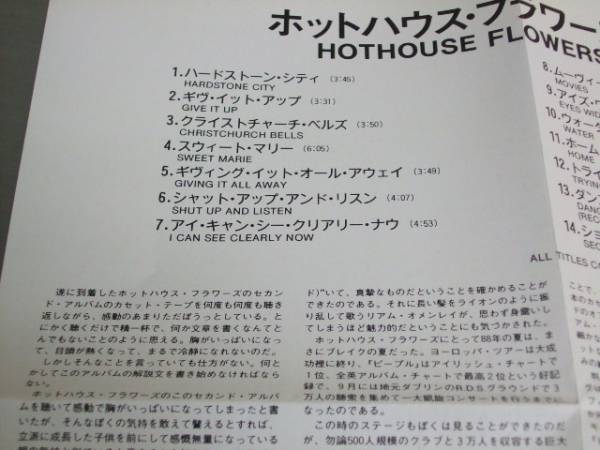 ホットハウス・フラワー
HOTHOUSE FLOWERS
1.ハードストーン・シティ (3:45)
HARDSTONE CITY
2.ギヴ・イット・アップ (3:31)
GIVE IT UP
3.クライストチャーチ・ベルズ (3:50)
CHRISTCHURCH BELLS
4.スウィート・マリー (6:05)
SWEET MARIE
5.ギヴィング・イット・オール・アウェイ (3:49)
GIVING IT ALL AWAY
6.シャット・アップ・アンド・リスン (4:07)
SHUT UP AND LISTEN
7.アイ・キャン・シー・クリアリー・ナウ (4:53)
I CAN SEE CLEARLY NOW
8.ムーヴィー
MOVIES
9.アイズ・
EYES WID
10.ウォータ
WATER
11.ホーム
HOME
12.トライ
TRYIN
13.ダン
DANC
(REC
14.ショ
SEC
ALL TITLES C
遂に到着したホットハウス・フラワーズのセカン
ド・アルバムのカセット・テープを何度も何度も聴き
返しながら、感動のあまりただぼうっとしている。と
にかく聴くだけで精一杯で、何か文章を書くなんてと
んでもないことのように思える。胸がいっぱいになっ
て、目頭が熱くなって、まるで冷静になれないのだ。
しかしそんなことを言っていても仕方がない。何と
かしてこのアルバムの解説文を書き始めなければなら
ない。
ホットハウス・フラワーズのこのセカンド・アルバ
ムを聴いて感動で胸がいっぱいになってしまったと書
いたが、そんなぼくの気持を敢えて譬えるとすれば、
立派に成長した子供を前にして感慨無量になっている
ド)"いて、真摯なものだということを確かめることが
できたのである。それに長い髪をライオンのように振
り乱して歌うリアム・オメンレイが、思わず身震いし
てしまうほど魅力的だということにも気づかされた。
ホットハウス・フラワーズにとって88年の夏は、ま
さにブレイクの夏だった。ヨーロッパ・ツアーは大成
功裡に終り、「ピープル」はアイリッシュ・チャートで
1位、全英アルバム・チャートで最高2位という好記
録で、9月には地元ダブリンのR.D.S.グラウンドで3
万人の聴衆を集めて一大凱旋コンサートを行うまでに
なったのである。
この時のステージもぼくは見ることができたのだ
が、勿論500人規模のクラブと3万人を収容する巨大